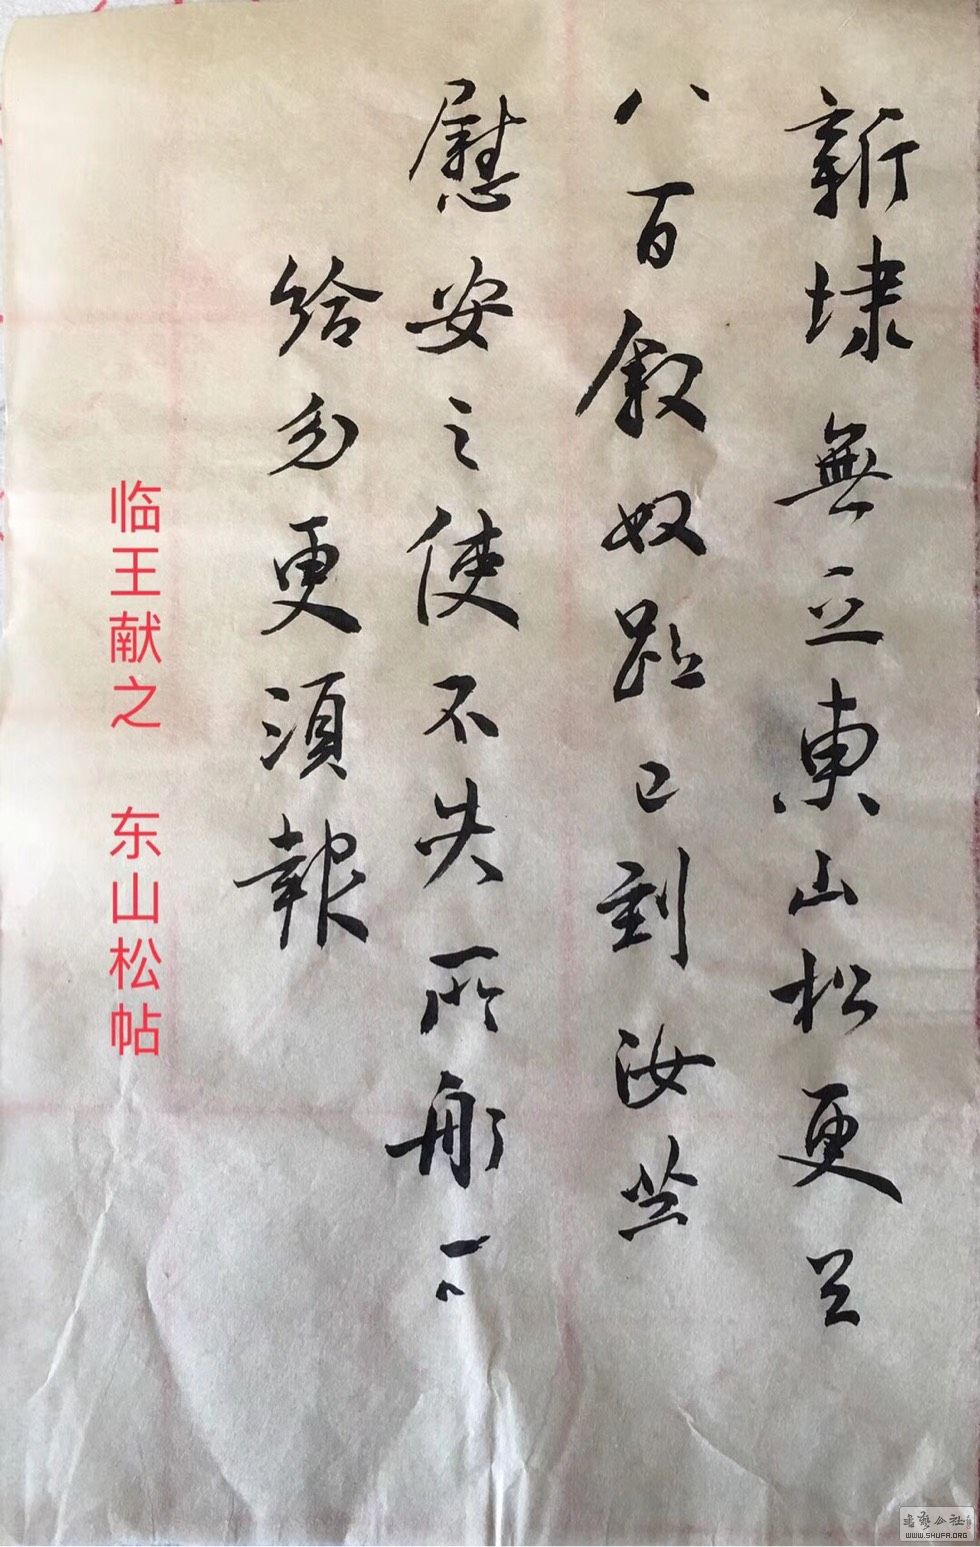 新埭無乏東山松更
八百敘奴已到汝
慰安之使不失所船可
給勿更須報
临王献之 东山松帖
書法公社
WWW.SHUFA.ORG